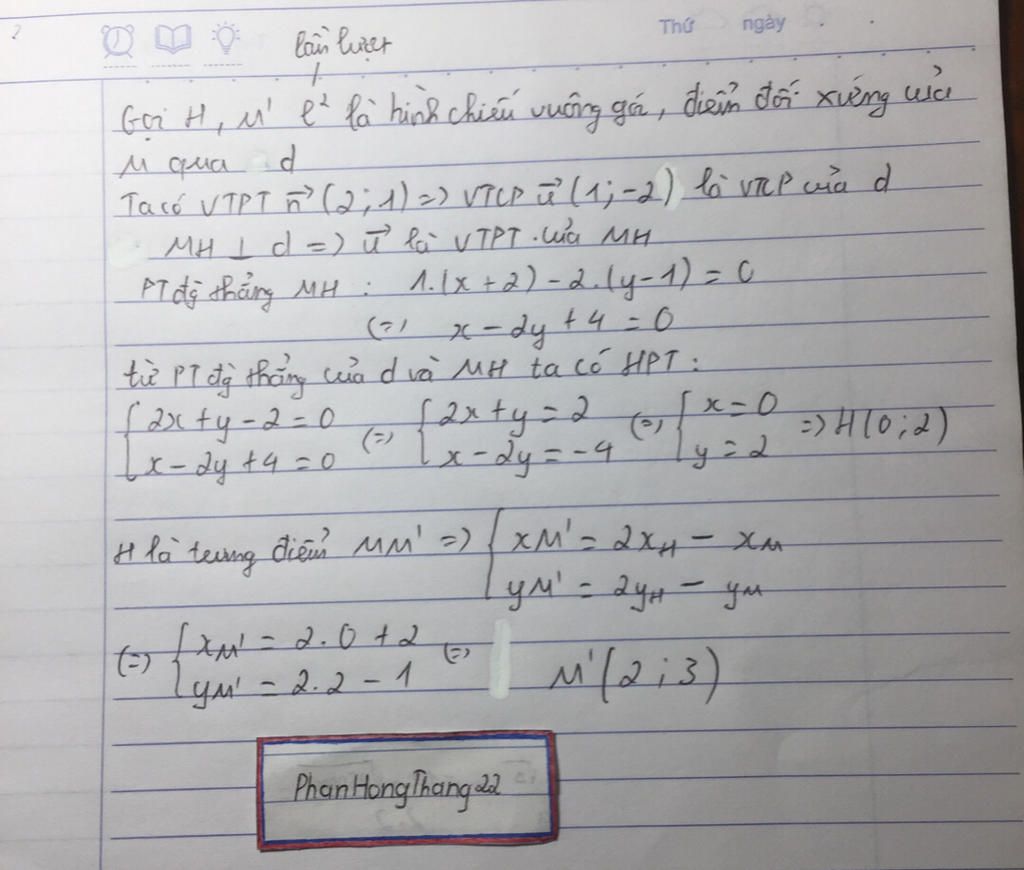 Thứ ngày
lần lượt
Gọi H, M' l² là hình chiếu vuông góc, điểm đối xứng của
M qua d
Ta có VTPT n→(2;1) => VTCP u→(1;-2) là VTCP của d
MH ⊥ d => u→ là VTPT của MH
PT đg thẳng MH : 1.(x+2) - 2.(y-1) = 0
(=) x - 2y + 4 = 0
từ PT đg thẳng của d và MH ta có HPT :
{ 2x + y - 2 = 0 (=) { 2x + y = 2 (=) { x = 0 => H(0;2)
x - 2y + 4 = 0 x - 2y = -4 y = 2
H là trung điểm MM' => { xM' = 2xH - xM
yM' = 2yH - yM
(=) { xM' = 2.0 + 2 (=) M'(2;3)
yM' = 2.2 - 1
PhanHongThang22